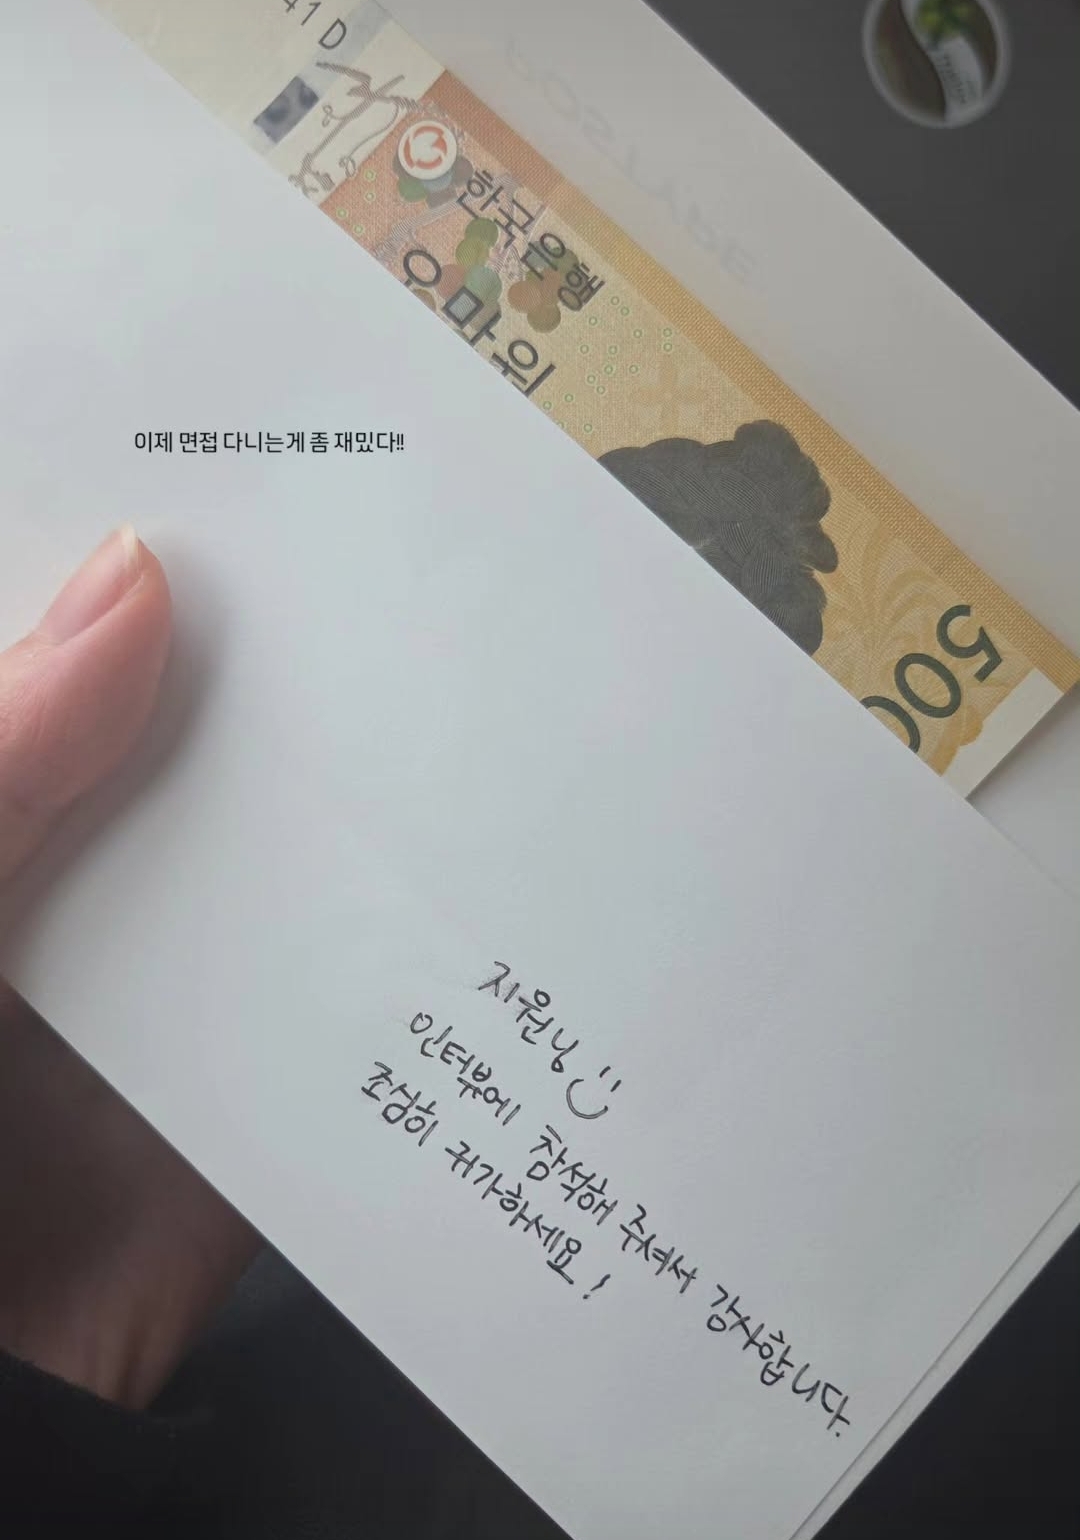 41 D
한국은행
오만원
500
이제 면접 다니는게 좀 재밌다!!
지원님
인터뷰에 참석해 주셔서 감사합니다.
조심히 귀가하세요!